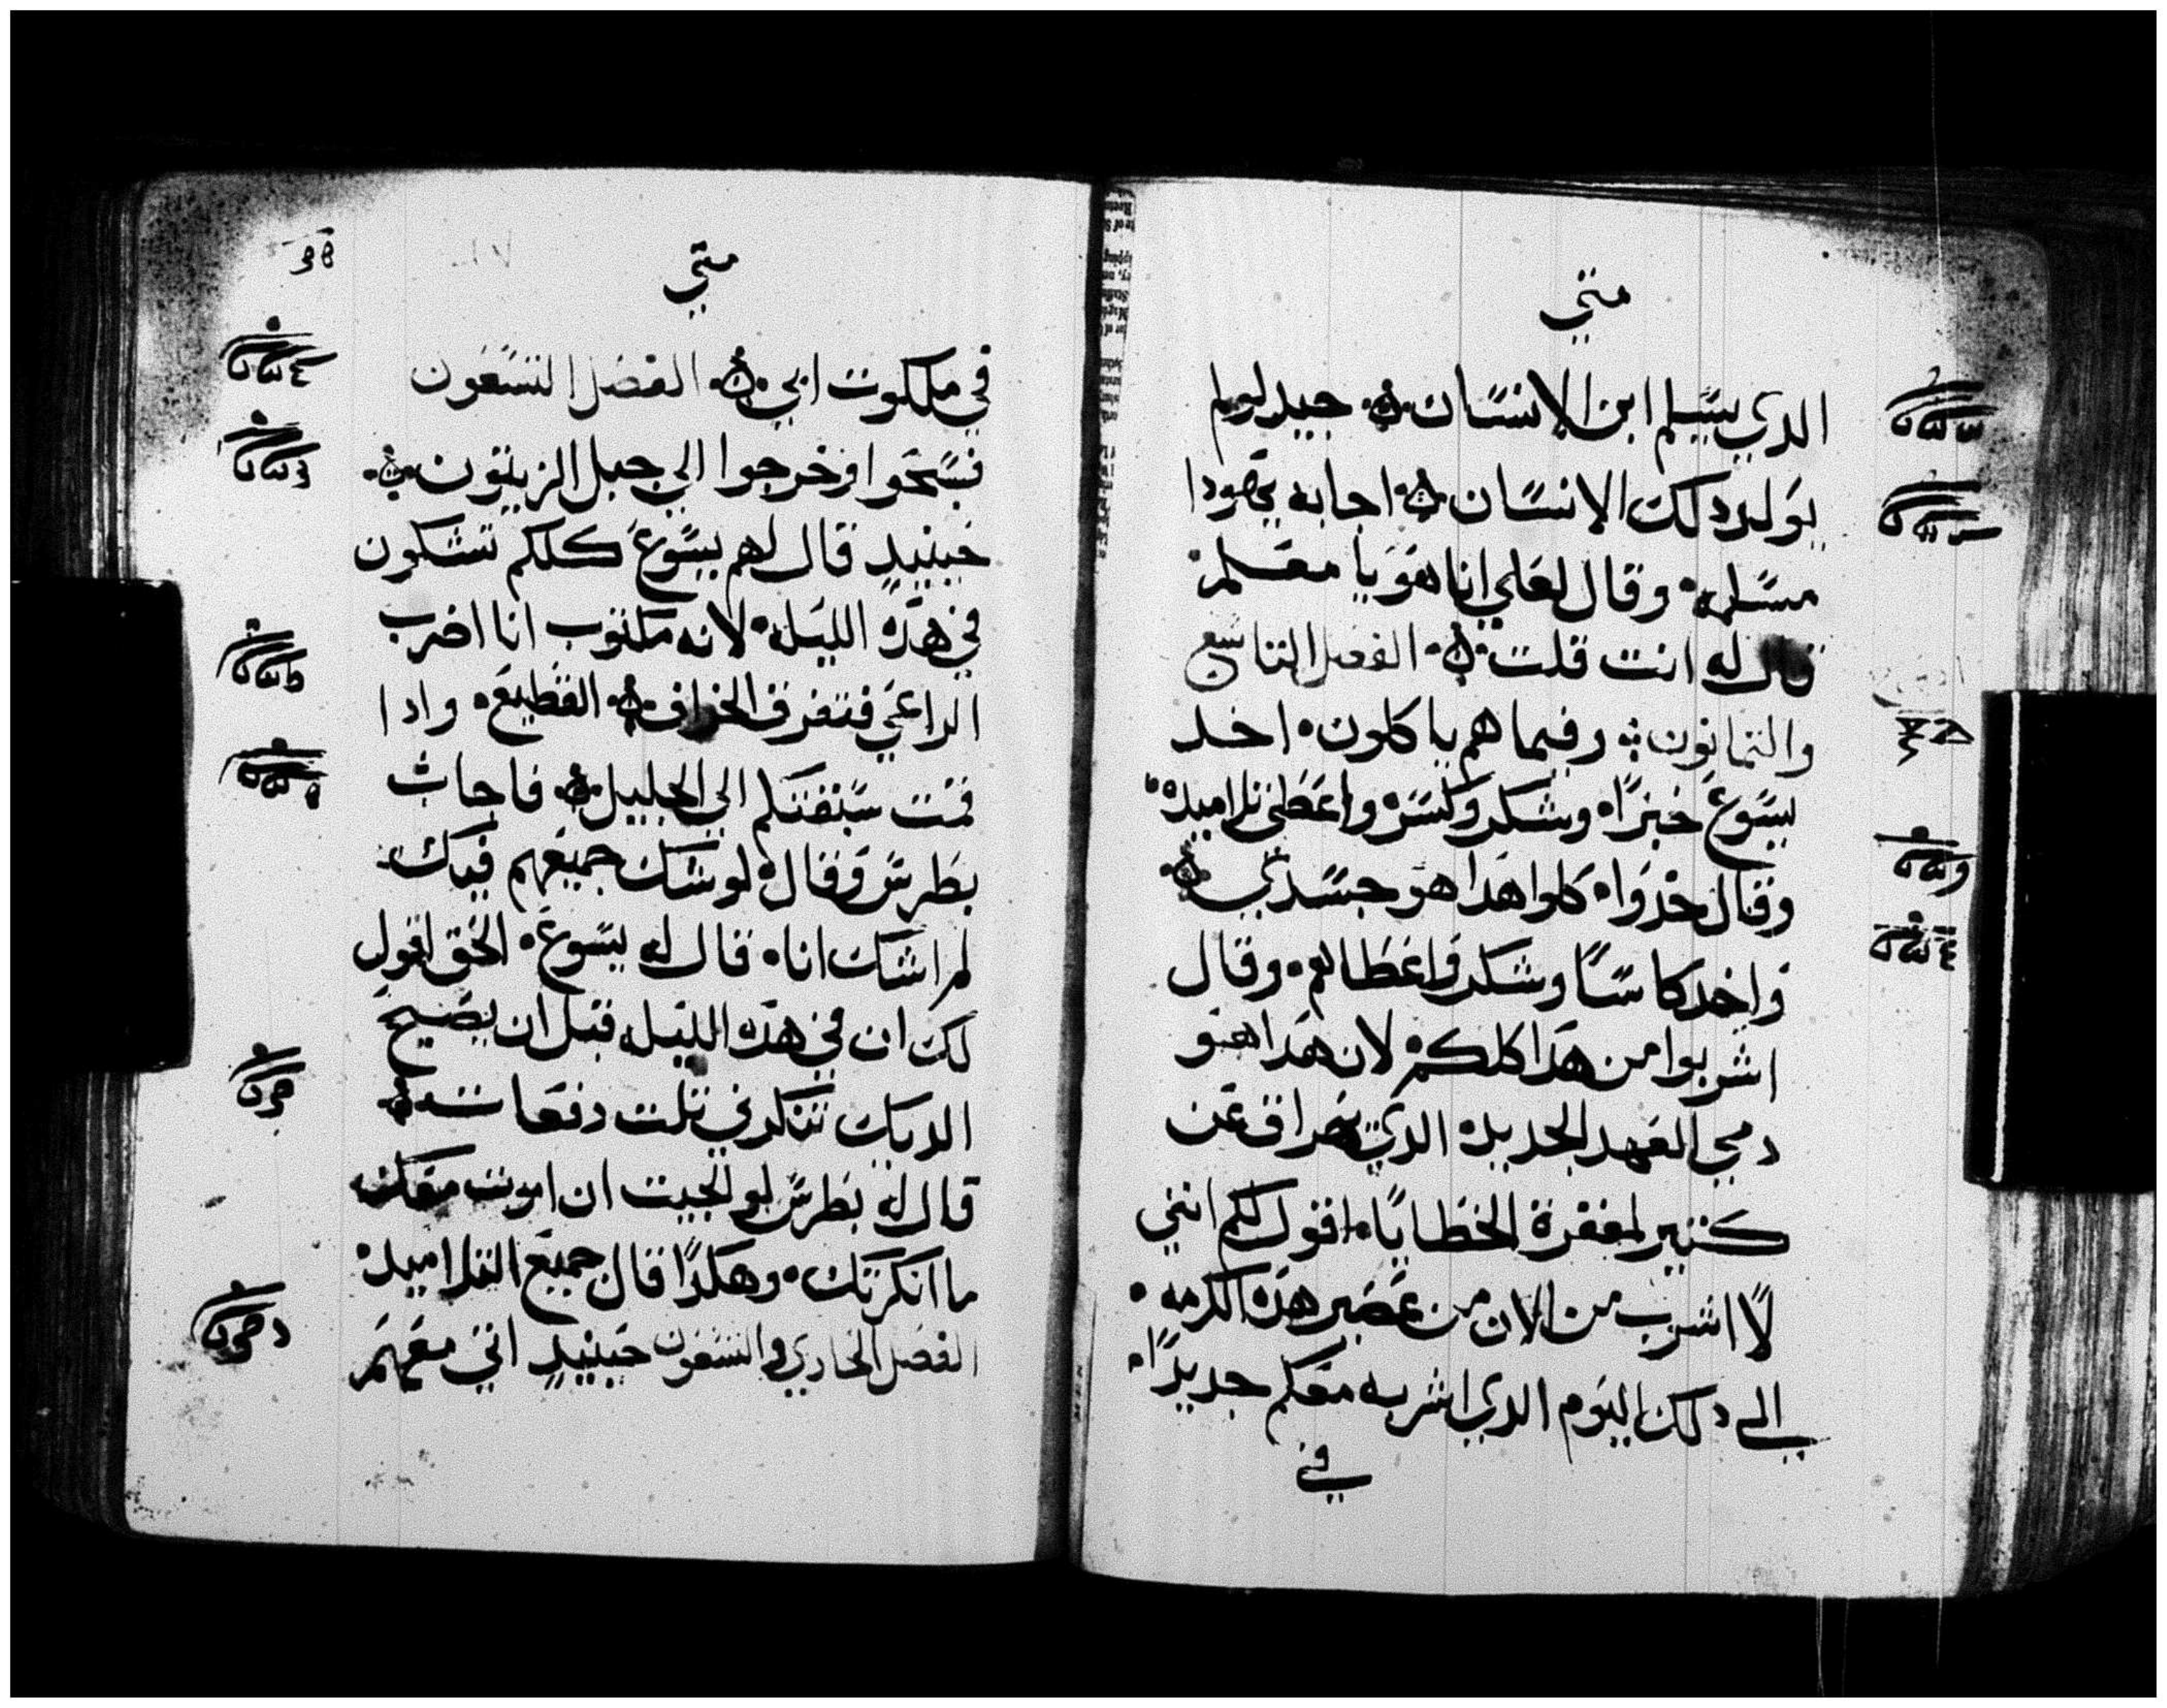 متي
الدي يسلم ابن الانسان جيد لو لم
يولد دلك الانسان اجابه يهودا
مسلمه وقال لعلي انا هو يا معلم
قال له انت قلت الفصل التاسع
والتمانون وفيما هم ياكلون اخد
يسوع خبزًا وشكر وكسره واعطي تلاميده
وقال خدوا كلوا هدا هو جسدي
واخد كاسًا وشكر واعطاهم وقال
اشربوا من هدا كلكم لان هدا هو
دمي العهد الجديد الدي يهراق عن
كتير لمغفرة الخطايا اقول لكم انني
لا اشرب من الان من عصير هده الكرمه
الى دلك اليوم الدي اشربه معكم جديدًا
في
متي
في ملكوت ابي الفصل التسعون
فسبحوا وخرجوا الي جبل الزيتون
حينيدٍ قال لهم يسوع كلكم تشكون
في هده الليله لانه مكتوب انا اضرب
الراعي فتفرق الخراف القطيع وادا
قمت سبقتكم الي الجليل فاجاب
بطرس وقال لو شك جميعهم فيك
لم اشك انا قال له يسوع الحق اقول
لك ان في هده الليله قبل ان يصيح
الديك تنكرني تلت دفعات
قال له بطرس لو الجيت ان اموت معك
ما انكرتك وهكدا قال جميع التلاميد
الفصل الحادي والتسعون حينيدٍ اتي معهم